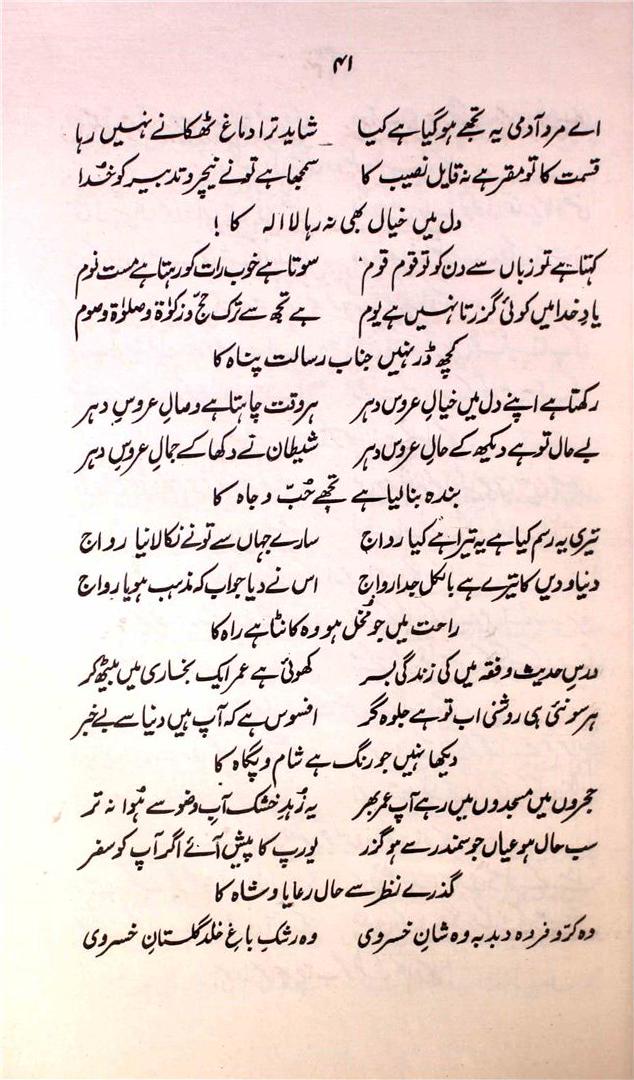 ۴۱
اے مرد آدمی یہ تجھے ہوگیا ہے کیا شاید ترا دماغ ٹھکانے نہیں رہا
قسمت کا تو مقر ہے نہ قایل نصیب کا سمجھا ہے تونے نیچر و تدبیر کو خُدا
دل میں خیال بھی نہ رہا لا الہ کا !
کہتا ہے تو زباں سے دن کو تو قوم قوم سوتا ہے خوب رات کو رہتا ہے مست نوم
یادِ خدا میں کوئی گزرتا نہیں ہے یوم ہے تجھ سے ترک حج و زکوٰۃ و صلوٰۃ و صوم
کچھ ڈر نہیں جناب رسالت پناہ کا
رکھتا ہے اپنے دل میں خیالِ عروس دہر ہر وقت چاہتا ہے وصالِ عروسِ دہر
بے حال تو ہے دیکھ کے حالِ عروس دہر شیطان نے دکھا کے جمالِ عروسِ دہر
بندہ بنا لیا ہے تجھے حُبّ و جاہ کا
تیری یہ رسم کیا ہے یہ تیرا ہے کیا رواج سارے جہاں سے تونے نکالا نیا رواج
دنیا و دیں کا تیرے ہے بالکل جدا رواج اس نے دیا جواب کہ مذہب ہو یا رواج
راحت میں جو مُخل ہو وہ کانٹا ہے راہ کا
درسِ حدیث و فقہ میں کی زندگی بسر کھوئی ہے عمر ایک بخاری میں بیٹھ کر
ہر سو نئی ہی روشنی اب تو ہے جلوہ گر افسوس ہے کہ آپ ہیں دنیا سے بے خبر
دیکھا نہیں جو رنگ ہے شام و پگاہ کا
حجروں میں مسجدوں میں رہے آپ عمر بھر یہ زُہدِ خشک آبِ وضو سے ہُوا نہ تر
سب حال ہو عیاں جو سمندر سے ہو گزر یورپ کا پیش آئے اگر آپ کو سفر
گذرے نظر سے حال رعایا و شاہ کا
وہ کرّ و فر وہ دبدبہ وہ شانِ خسروی وہ رشکِ باغِ خلد گلستانِ خسروی